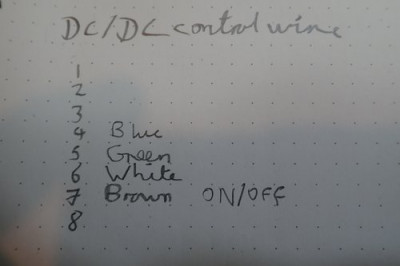 DC/DC control wire
1
2
3
4 Blue
5 Green
6 White
7 Brown ON/OFF
8